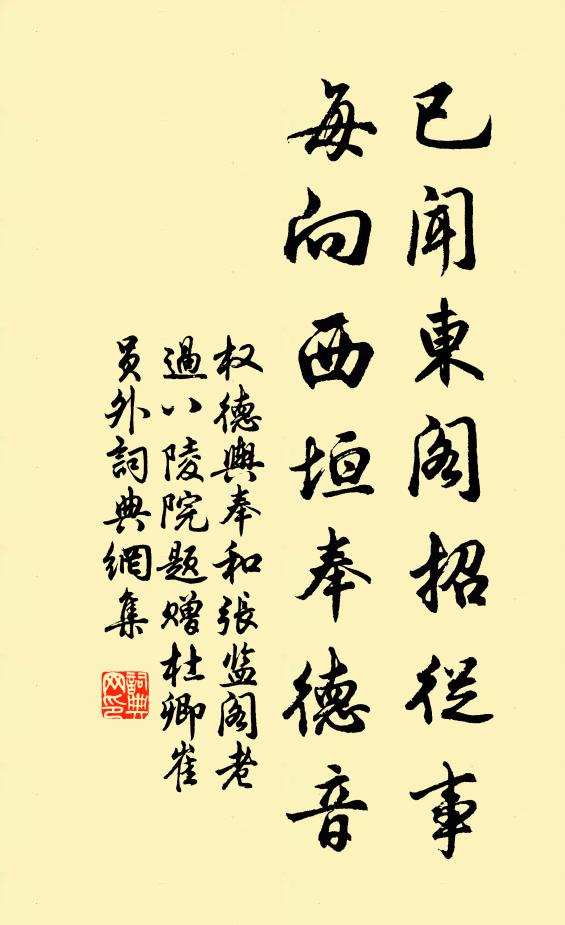 已聞東閣招從事
每向西垣奉德音
权德輿奉和張监阁老
過八陵院题贈杜卿崔
員外詞典網集
詞典网印